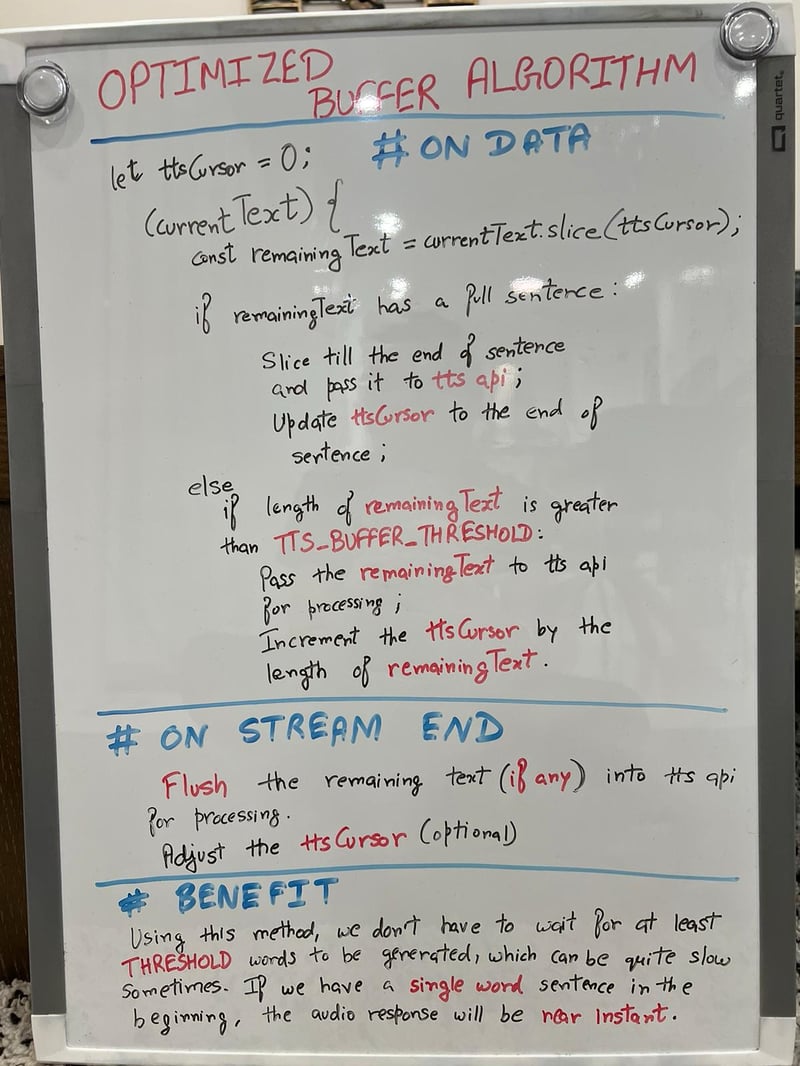 OPTIMIZED
BUFFER ALGORITHM
quartet
let ttsCursor = 0;
# ON DATA
(currentText) {
const remainingText = currentText.slice(ttsCursor);
if remainingText has a full sentence:
Slice till the end of sentence
and pass it to tts api;
Update ttsCursor to the end of
sentence;
else
if length of remainingText is greater
than TTS_BUFFER_THRESHOLD:
Pass the remainingText to tts api
for processing;
Increment the ttsCursor by the
length of remainingText.
# ON STREAM END
Flush the remaining text (if any) into tts api
for processing.
Adjust the ttsCursor (optional)
# BENEFIT
Using this method, we don't have to wait for at least
THRESHOLD words to be generated, which can be quite slow
sometimes. If we have a single word sentence in the
beginning, the audio response will be near instant.